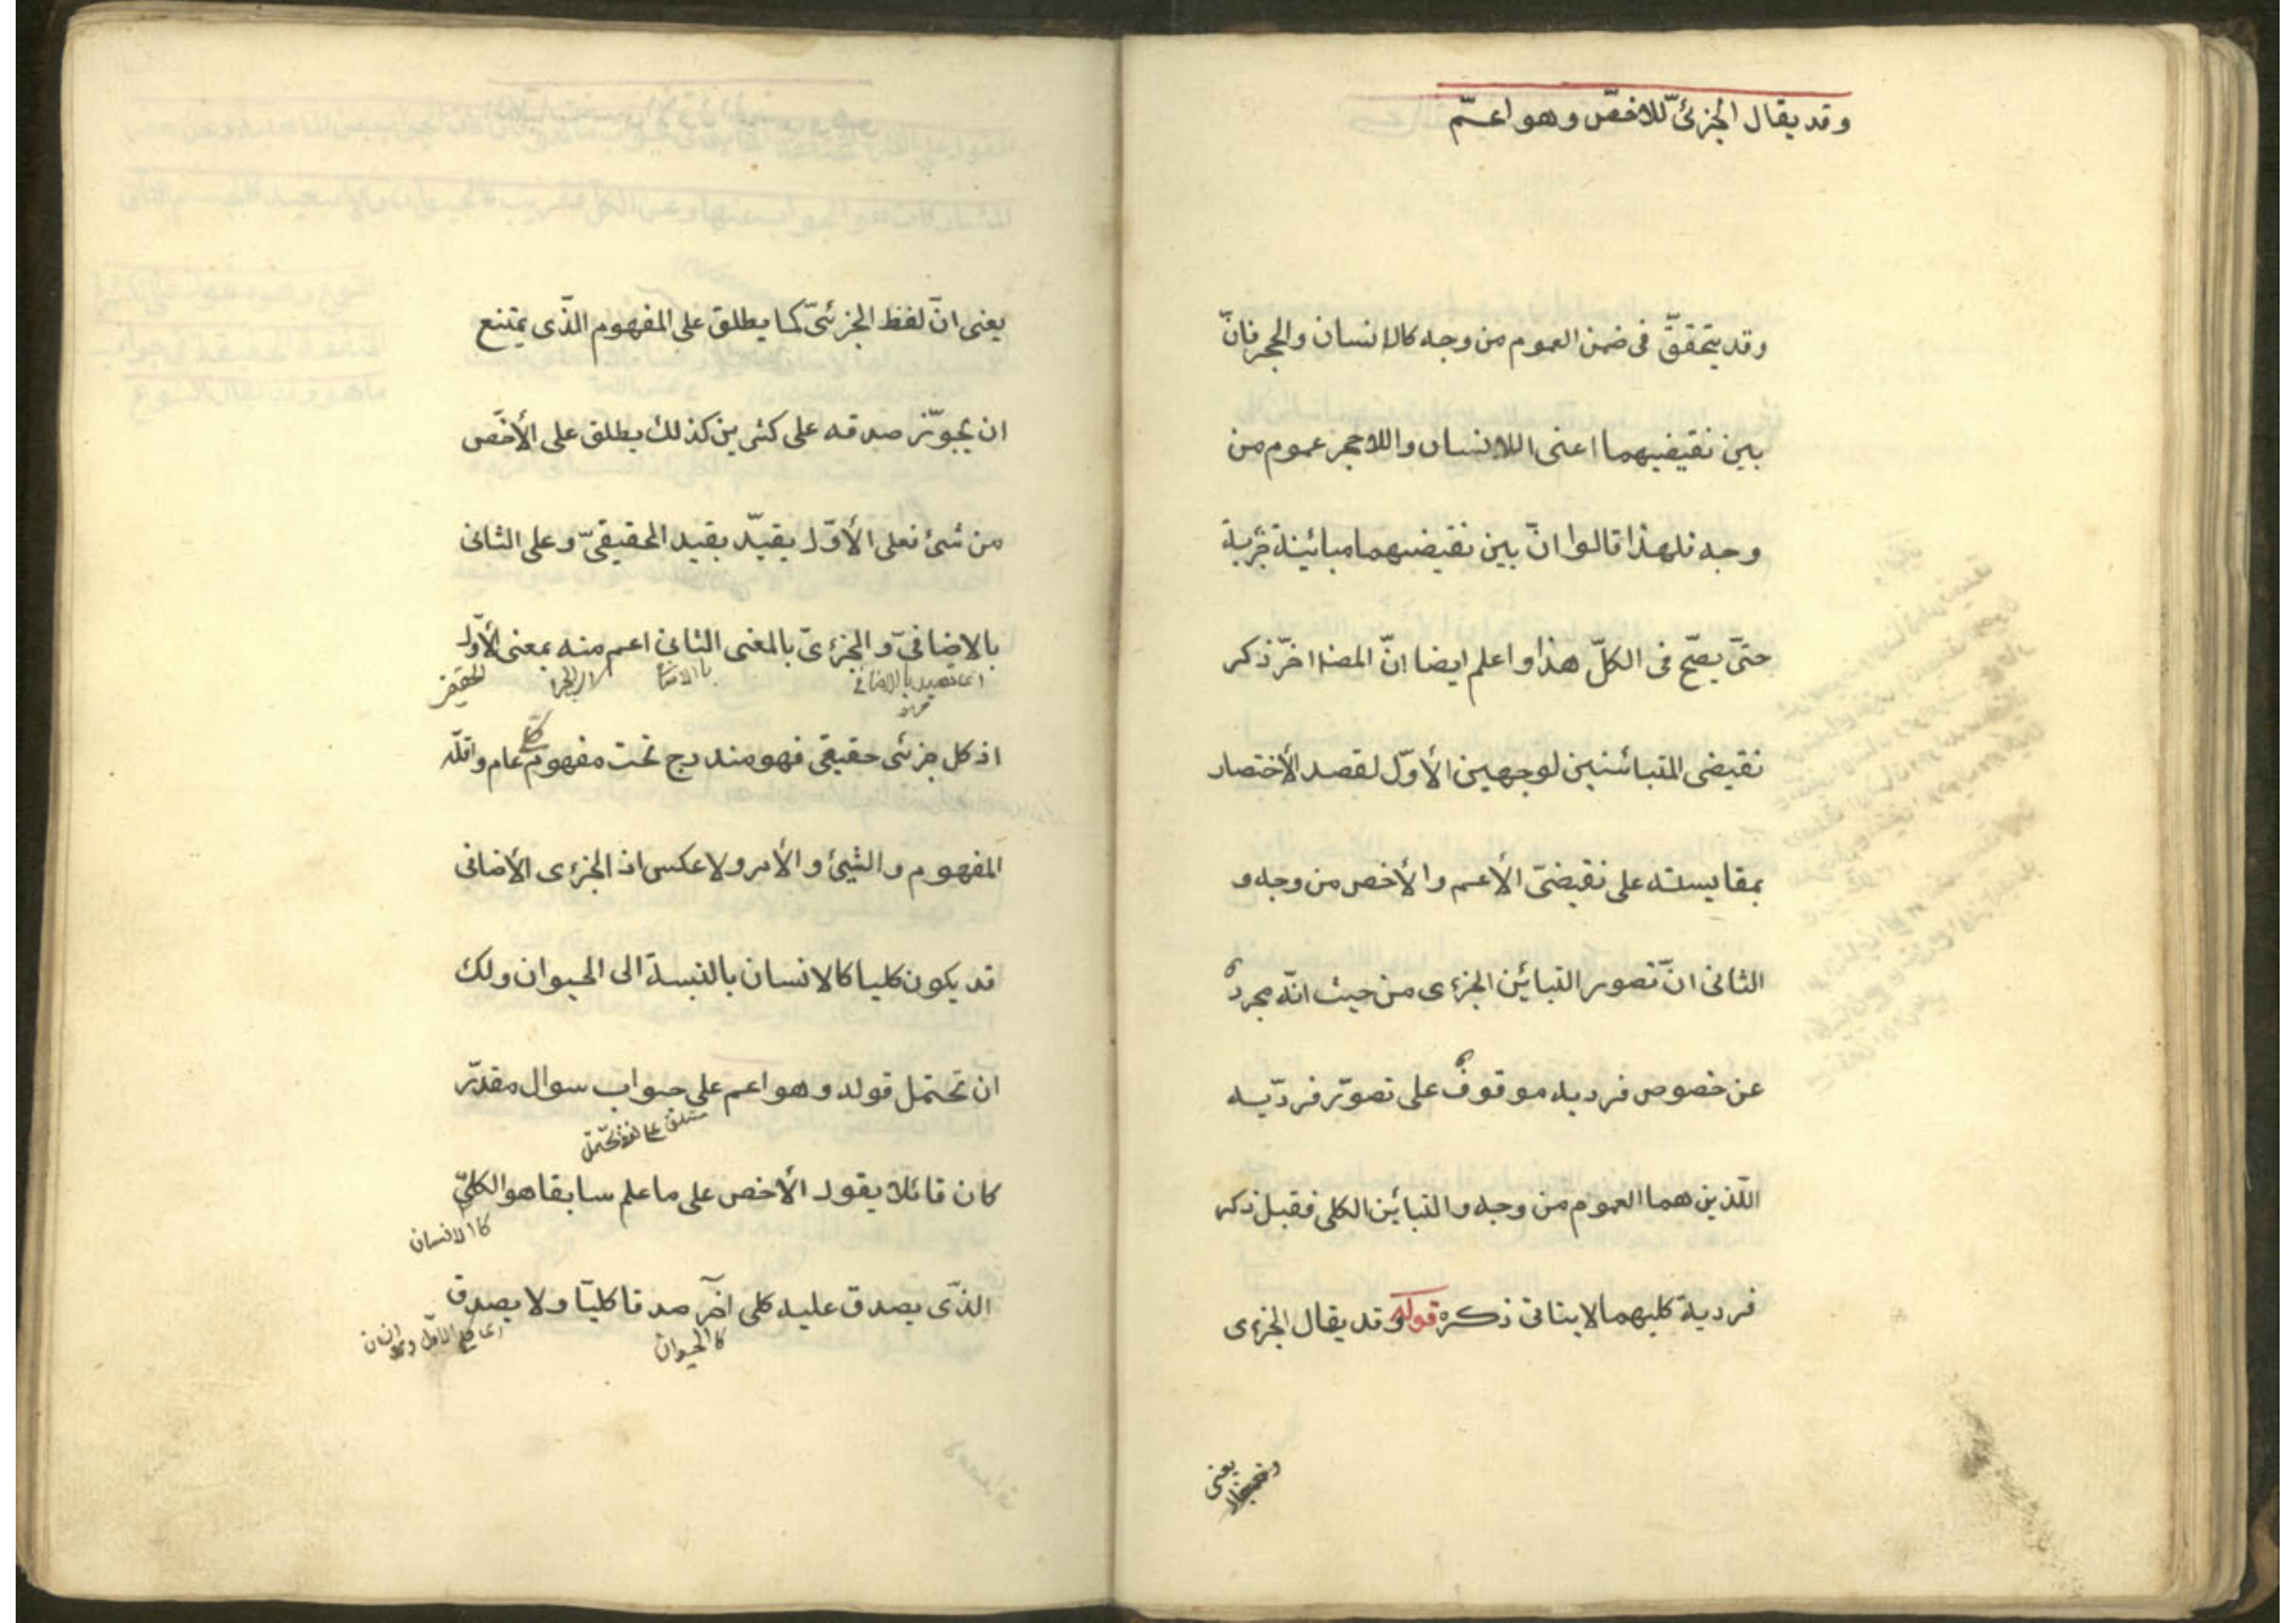 وقد يقال الجزئىّ للاخصّ وهو اعمّ
وقد يتحقّق فى ضمن العموم من وجه كالانسان والحجر فانّ
بين نقيضيهما اعنى اللاانسان واللاحجر عموم من
وجه فلهذا قالوا انّ بين نقيضيهما مبائينة جزئية
حتّى يصّح فى الكلّ هذا واعلم ايضا انّ المصـ اخّر ذكر
نقيضى المتبائنين لوجهين الأوّل لقصد الأختصار
بمقايسته على نقيضىّ الأعم والأخص من وجه و
الثانى انّ تصور التبائين الجزءى من حيث انّه مجرد
عن خصوص فرديه موقوف على تصوّر فردّيه
اللّذين هما العموم من وجه والتبائين الكلى فقبل ذكر
فرديه كليهما لايتاتى ذكره قوله وقد يقال الجزءى
يعنى
يعنى انّ لفظ الجزئىّ كما يطلق على المفهوم الذّى يمتنع
ان يجوّز صدقه على كثيرين كذلك يطلق على الأخّص
من شئ فعلى الأوّل يقيّد بقيد الحقيقىّ وعلى الثانى
بالاضافىّ والجزءىّ بالمعنى الثانى اعم منه بمعنى الأوّل
الحقيقى
اذ كل جزئى حقيقى فهو مندرج تحت مفهوم عام واقلّه
المفهوم والشيئ والأمر ولا عكس اذ الجزءى الأضافى
قد يكون كليا كالانسان بالنسبة الى الحيوان ولك
ان تحتمل قوله وهو اعم على جواب سوال مقدّر
متعلق على تحتمل
كان قائلا يقول الأخص على ما علم سابقا هو الكلىّ
كالانسان
الذّى يصدق عليه كلى آخر صدقا كليّا ولا يصدق
كالحيوان